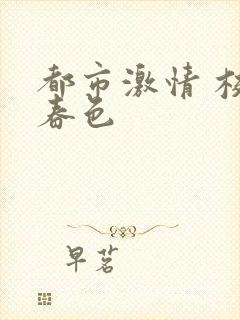 都市激情 校
春色
早茗